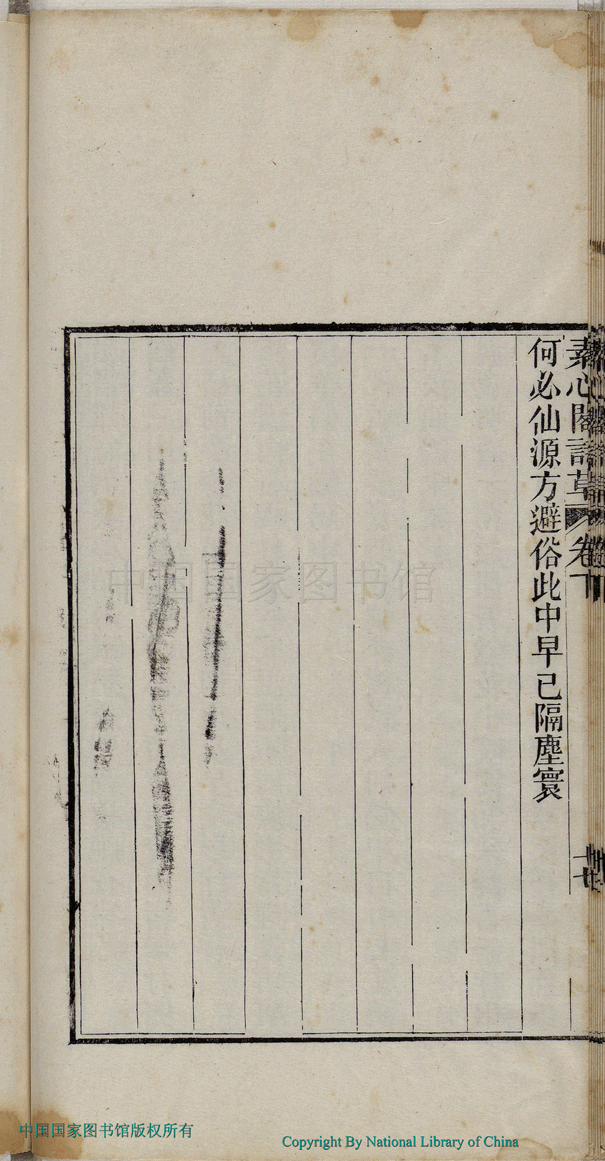 素心閣詩草 卷下
十七
何必仙源方避俗此中早已隔塵寰
中国国家图书馆
中国国家图书馆版权所有
Copyright By National Library of China